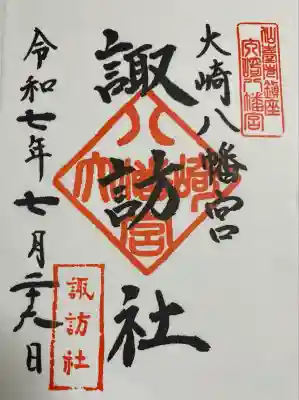 仙臺市鎮座
大崎八幡宮
大崎八幡宮
諏訪社
大崎八幡宮
令和七年七月二十九日
諏訪社